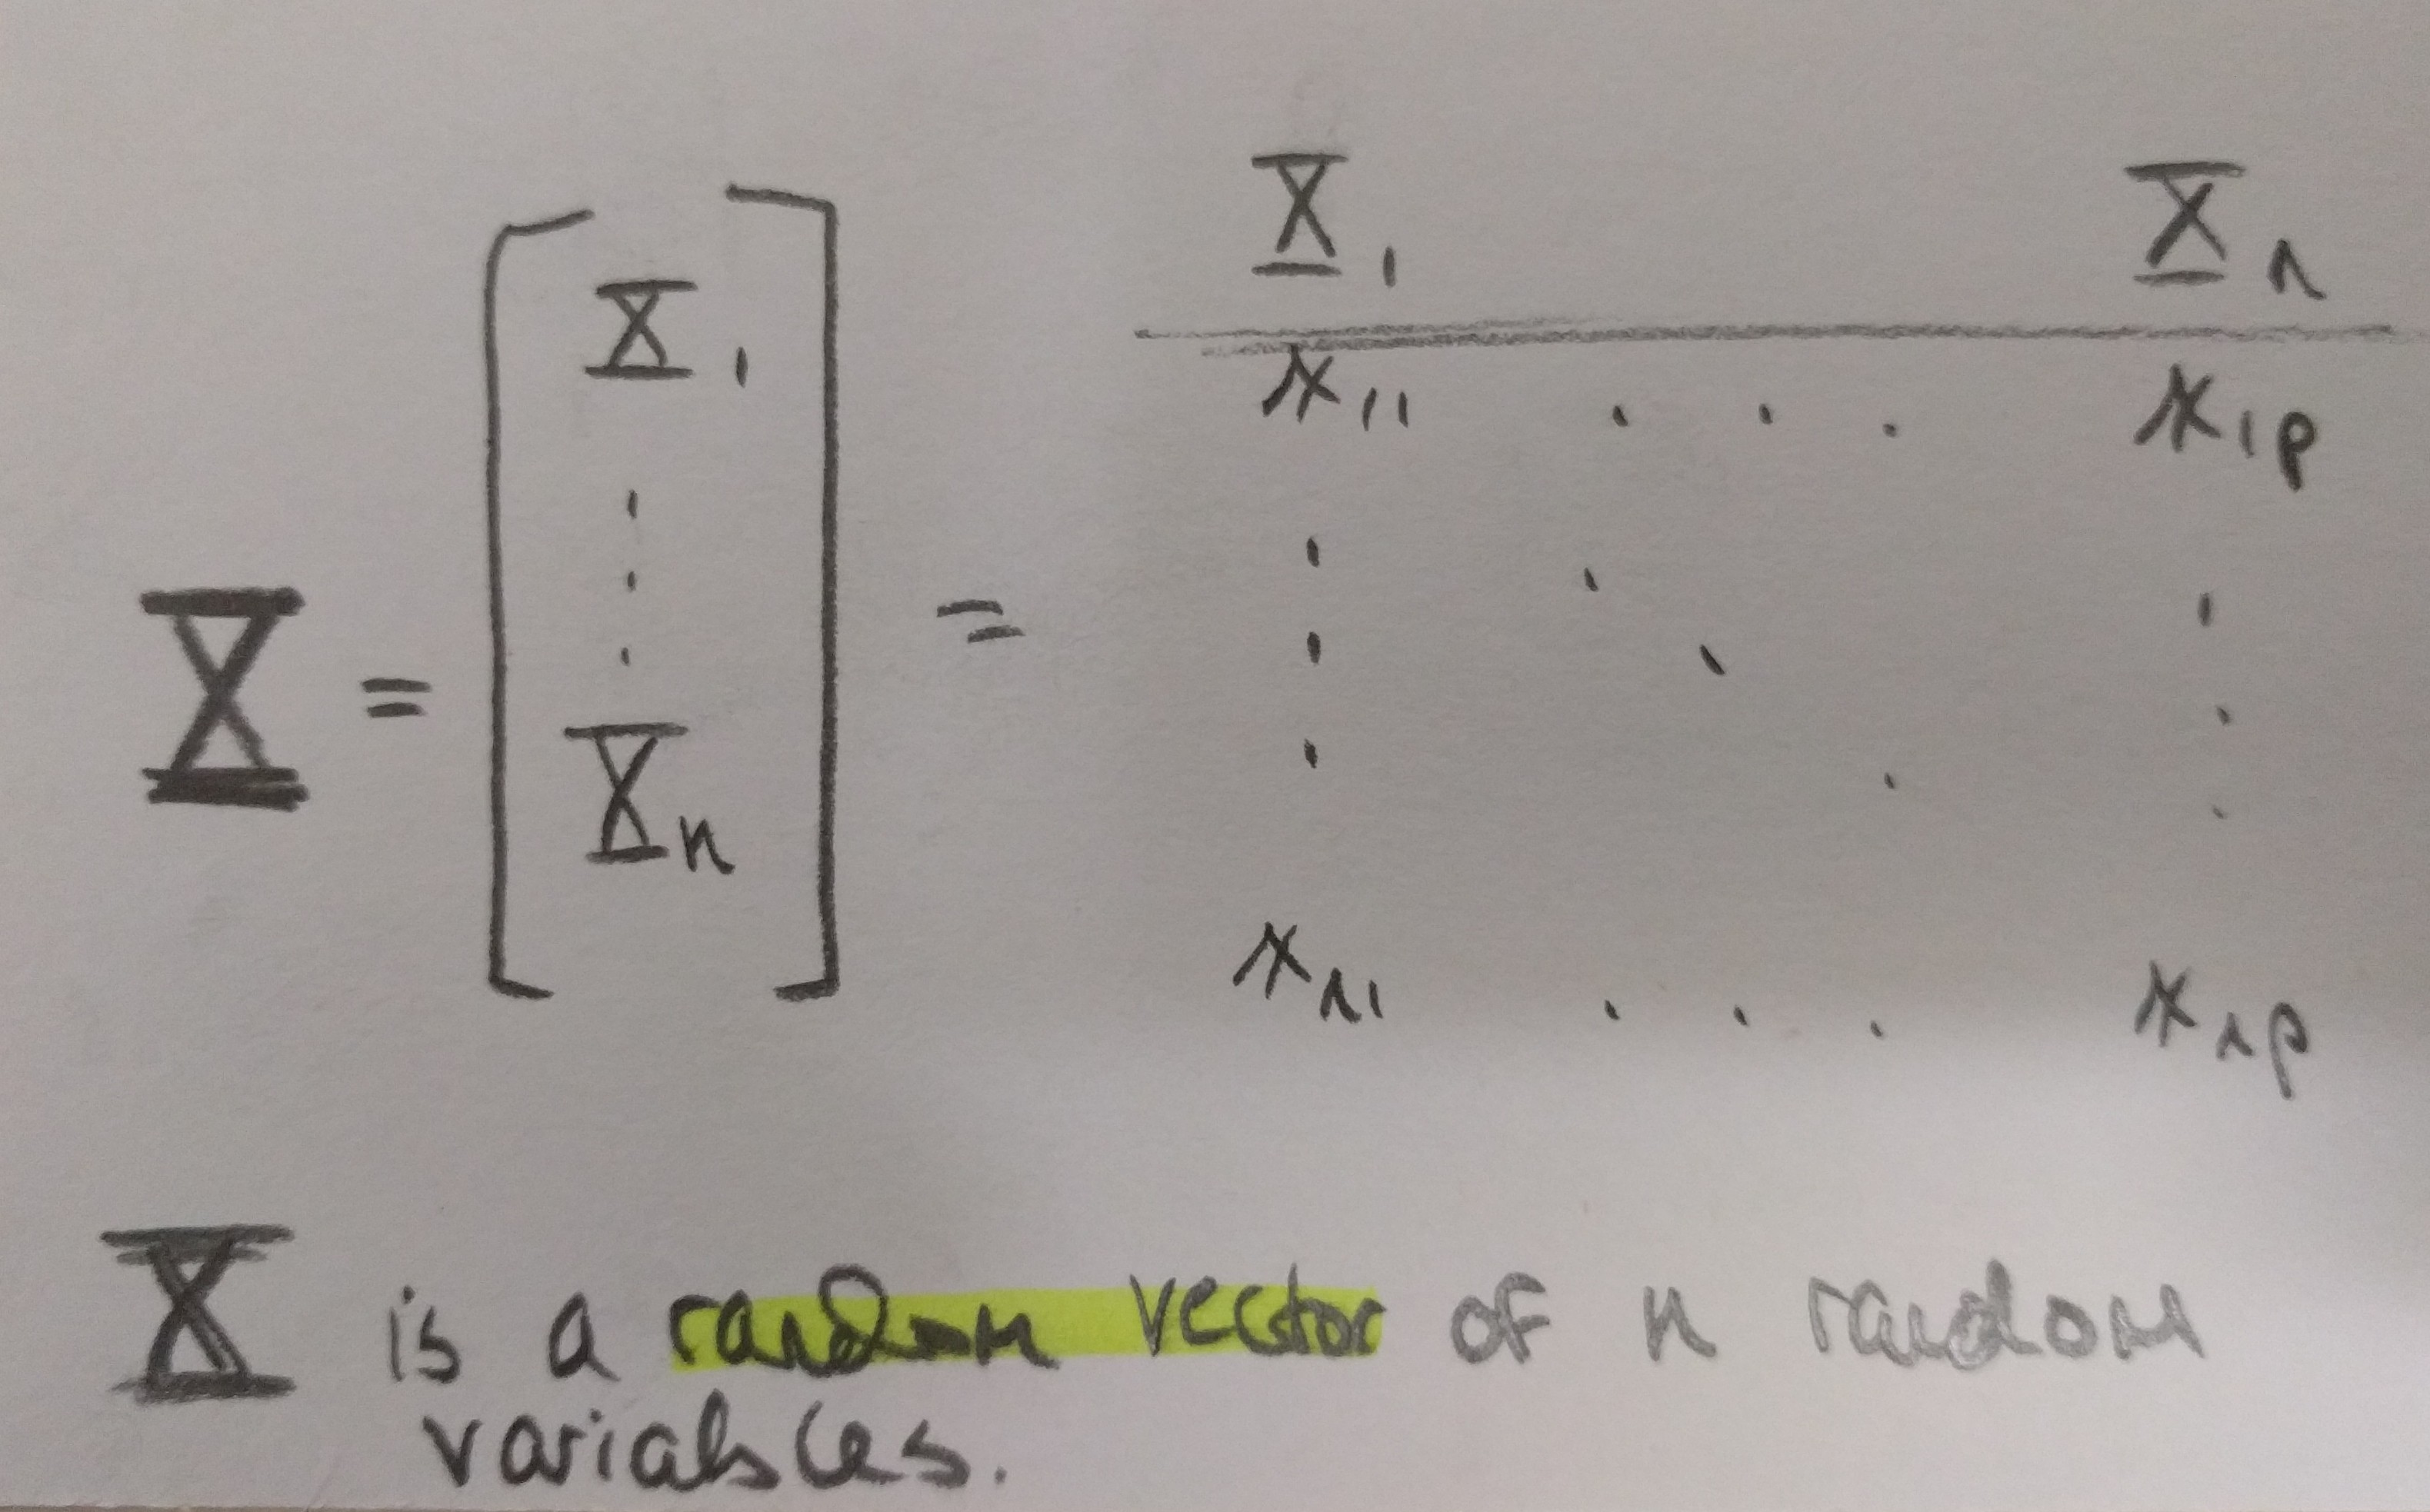 X₁ Xₙ
X = [ X₁ ⋮ Xₙ ] =
x₁₁ . . . x₁ₚ
xₙ₁ . . . xₙₚ
X is a random vector of n random
variables.